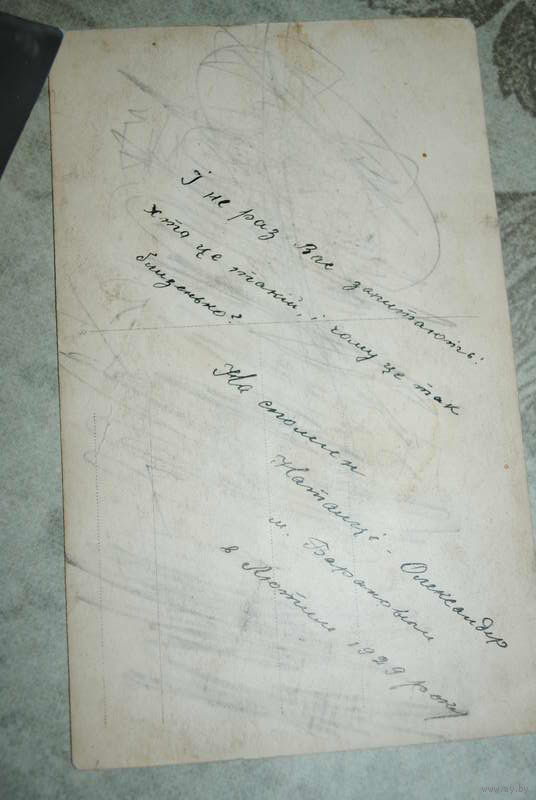 І не раз Вас запитають:
хто це такий, і чому це так
близенько?
На спомин
Наталці - Олександр
м. Барановичі
в Лютим 1929 року
www.ay.by